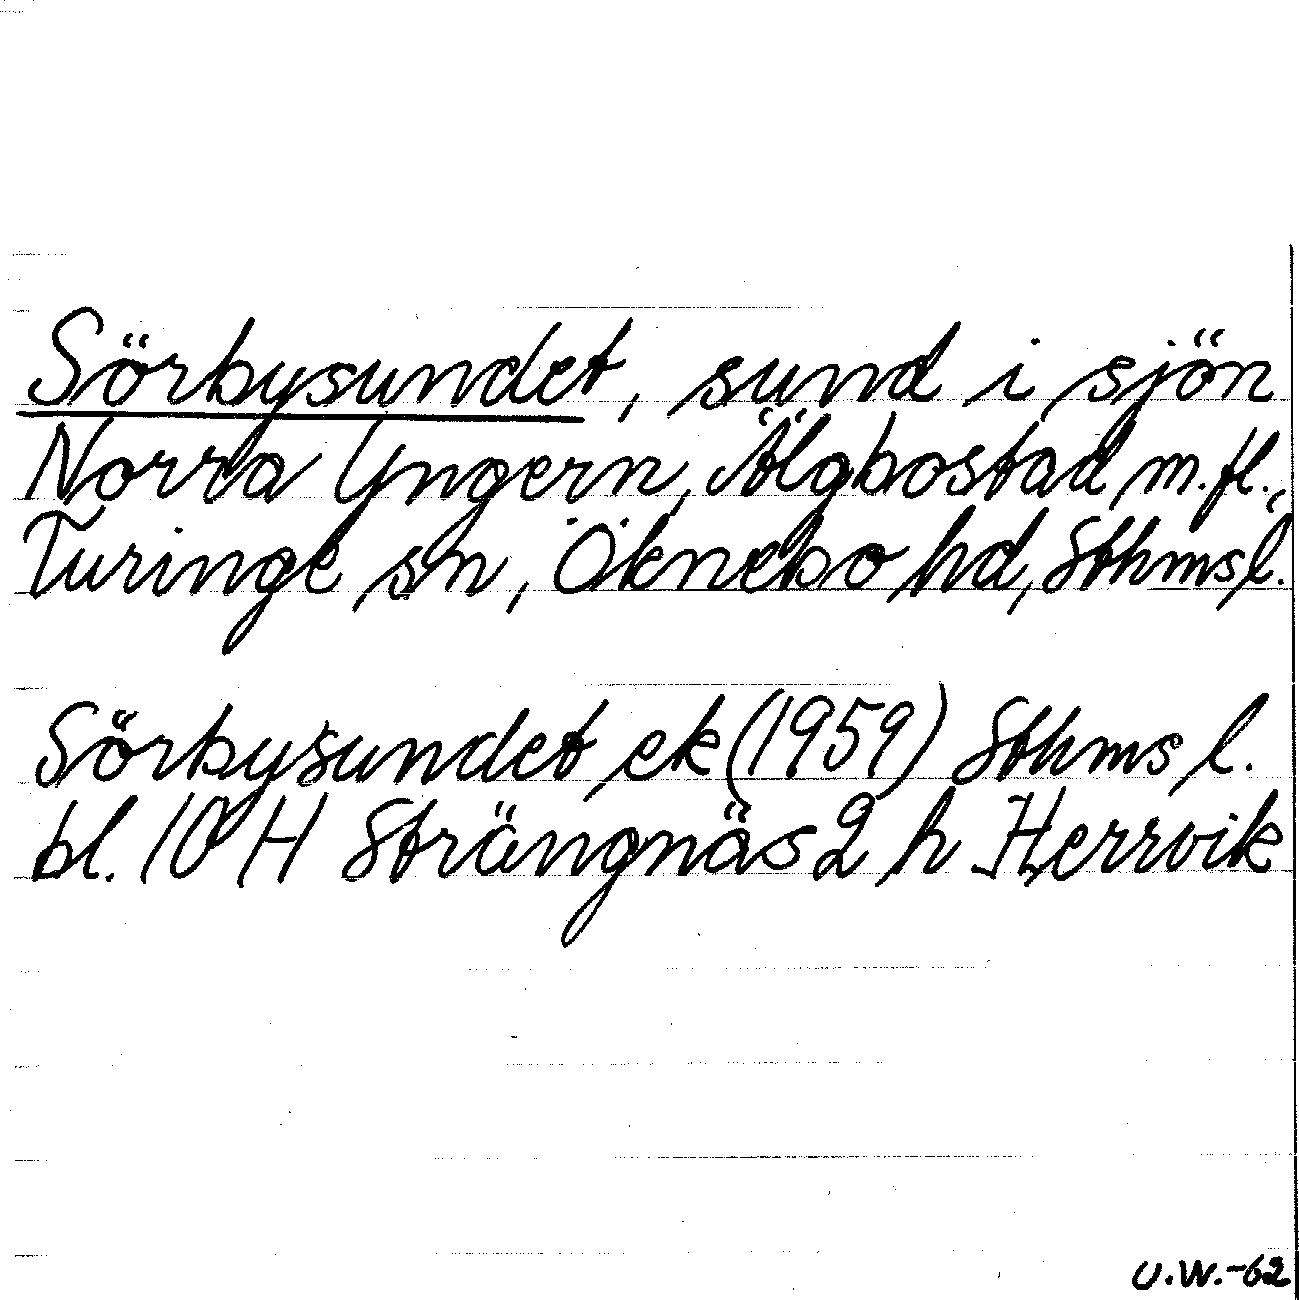 Sörbysundet, sund i sjön
Norra Yngern, Älgbostad m.fl.,
Turinge sn, Öknebo hd, Sthms l.
Sörbysundet ek (1959) Sthms l.
bl. 10 H Strängnäs 2 h Herrvik
U.W.-62